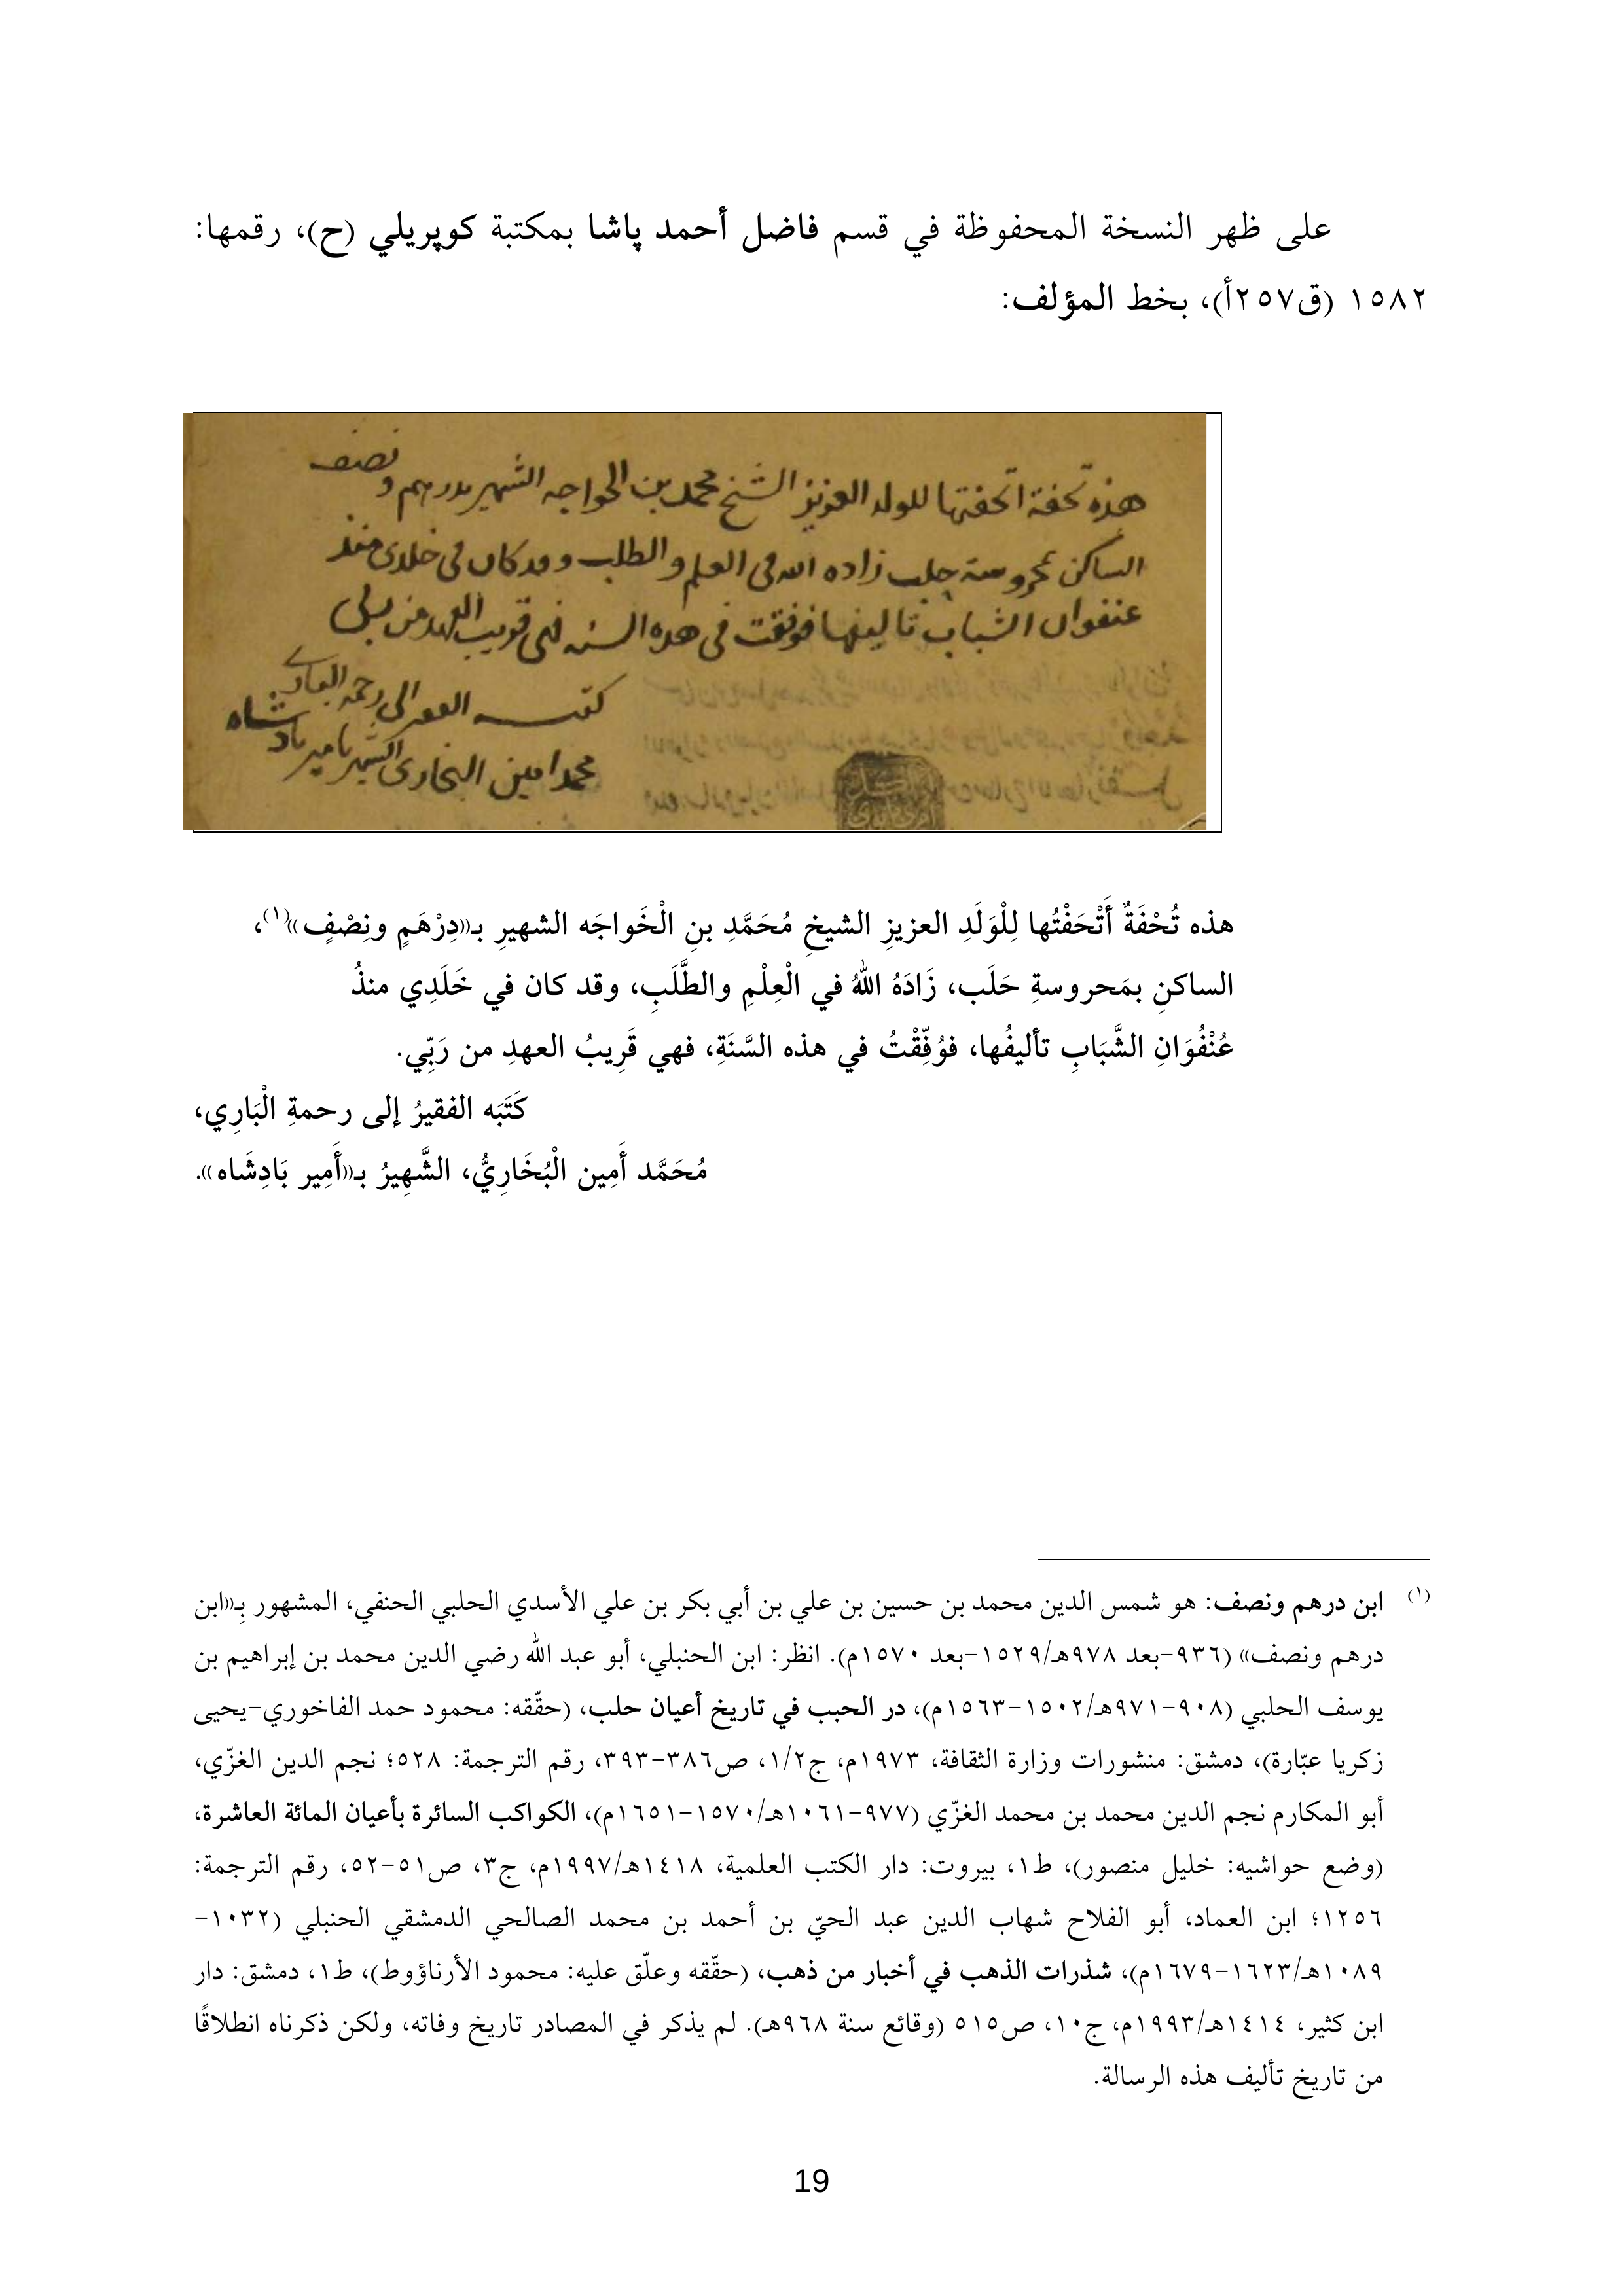 على ظهر النسخة المحفوظة في قسم فاضل أحمد پاشا بمكتبة كوپريلي (ح)، رقمها:
١٥٨٢ (ق٢٥٧أ)، بخط المؤلف:
هذه تحفة اتحفتها للولد العزيز الشيخ محمد بن الخواجه الشهير بدرهم و نصف
الساكن بمحروسة حلب زاده الله فى العلم و الطلب و قد كان فى خلدى منذ
عنفوان الشباب تاليفها فوفقت فى هذه السنه فهى قريب العهد من ربى
كتبه الفقير الى رحمة البارى
محمد امين البخارى الشهير بامير بادشاه
هذه تُحْفَةٌ أَتْحَفْتُها لِلْوَلَدِ العزيزِ الشيخِ مُحَمَّدِ بنِ الْخَواجَه الشهيرِ بـ«دِرْهَمٍ ونِصْفٍ»(١)،
الساكنِ بمَحروسةِ حَلَب، زَادَهُ اللهُ في الْعِلْمِ والطَّلَبِ، وقد كان في خَلَدِي منذُ
عُنْفُوَانِ الشَّبَابِ تأليفُها، فوُفِّقْتُ في هذه السَّنَةِ، فهي قَرِيبُ العهدِ من رَبِّي.
كَتَبَه الفقيرُ إلى رحمةِ الْبَارِي،
مُحَمَّد أَمِين الْبُخَارِيُّ، الشَّهِيرُ بـ«أَمِير بَادِشَاه».
(١) ابن درهم ونصف: هو شمس الدين محمد بن حسين بن علي بن أبي بكر بن علي الأسدي الحلبي الحنفي، المشهور بِـ«ابن
درهم ونصف» (٩٣٦-بعد ٩٧٨هـ/١٥٢٩-بعد ١٥٧٠م). انظر: ابن الحنبلي، أبو عبد الله رضي الدين محمد بن إبراهيم بن
يوسف الحلبي (٩٠٨-٩٧١هـ/١٥٠٢-١٥٦٣م)، در الحبب في تاريخ أعيان حلب، (حقّقه: محمود حمد الفاخوري-يحيى
زكريا عبّارة)، دمشق: منشورات وزارة الثقافة، ١٩٧٣م، ج١/٢، ص٣٨٦-٣٩٣، رقم الترجمة: ٥٢٨؛ نجم الدين الغزّي،
أبو المكارم نجم الدين محمد بن محمد الغزّي (٩٧٧-١٠٦١هـ/١٥٧٠-١٦٥١م)، الكواكب السائرة بأعيان المائة العاشرة،
(وضع حواشيه: خليل منصور)، ط١، بيروت: دار الكتب العلمية، ١٤١٨هـ/١٩٩٧م، ج٣، ص٥١-٥٢، رقم الترجمة:
١٢٥٦؛ ابن العماد، أبو الفلاح شهاب الدين عبد الحيّ بن أحمد بن محمد الصالحي الدمشقي الحنبلي (١٠٣٢-
١٠٨٩هـ/١٦٢٣-١٦٧٩م)، شذرات الذهب في أخبار من ذهب، (حقّقه وعلّق عليه: محمود الأرناؤوط)، ط١، دمشق: دار
ابن كثير، ١٤١٤هـ/١٩٩٣م، ج١٠، ص٥١٥ (وقائع سنة ٩٦٨هـ). لم يذكر في المصادر تاريخ وفاته، ولكن ذكرناه انطلاقًا
من تاريخ تأليف هذه الرسالة.
19